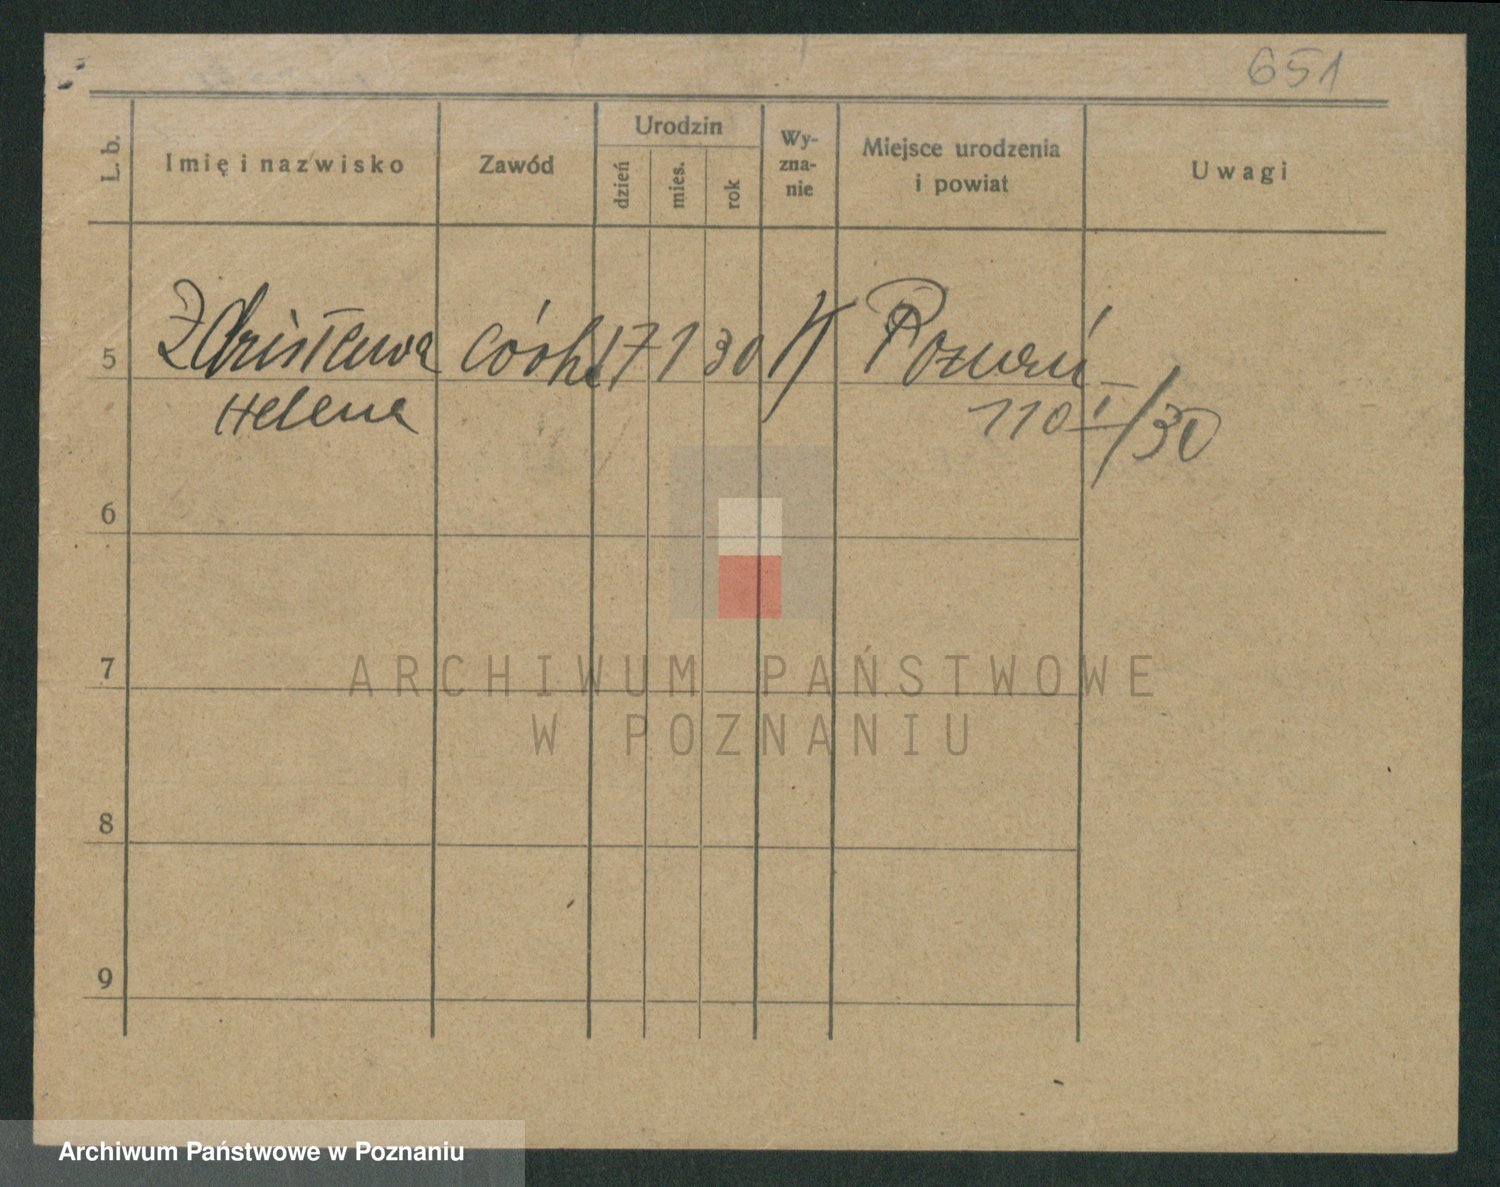 651
L. b. Imię i nazwisko Zawód Urodzin Wy- Miejsce urodzenia Uwagi
dzień mies. rok zna- i powiat
nie
5 Zdzisława córka 17 1 30 K Poznań
Helena 110 I/30
6
7
ARCHIWUM PAŃSTWOWE
W POZNANIU
8
9
Archiwum Państwowe w Poznaniu